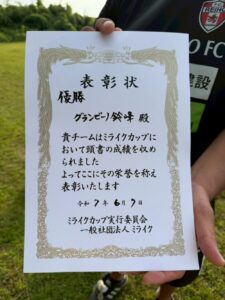 表彰状
優勝
グランビーノ鈴峰 殿
貴チームはミライクカップに
おいて頭書の成績を収め
られました
よってここにその栄誉を称え
表彰いたします
令和 7年 6月 9日
ミライクカップ実行委員会
一般社団法人 ミライク
O FC
建設